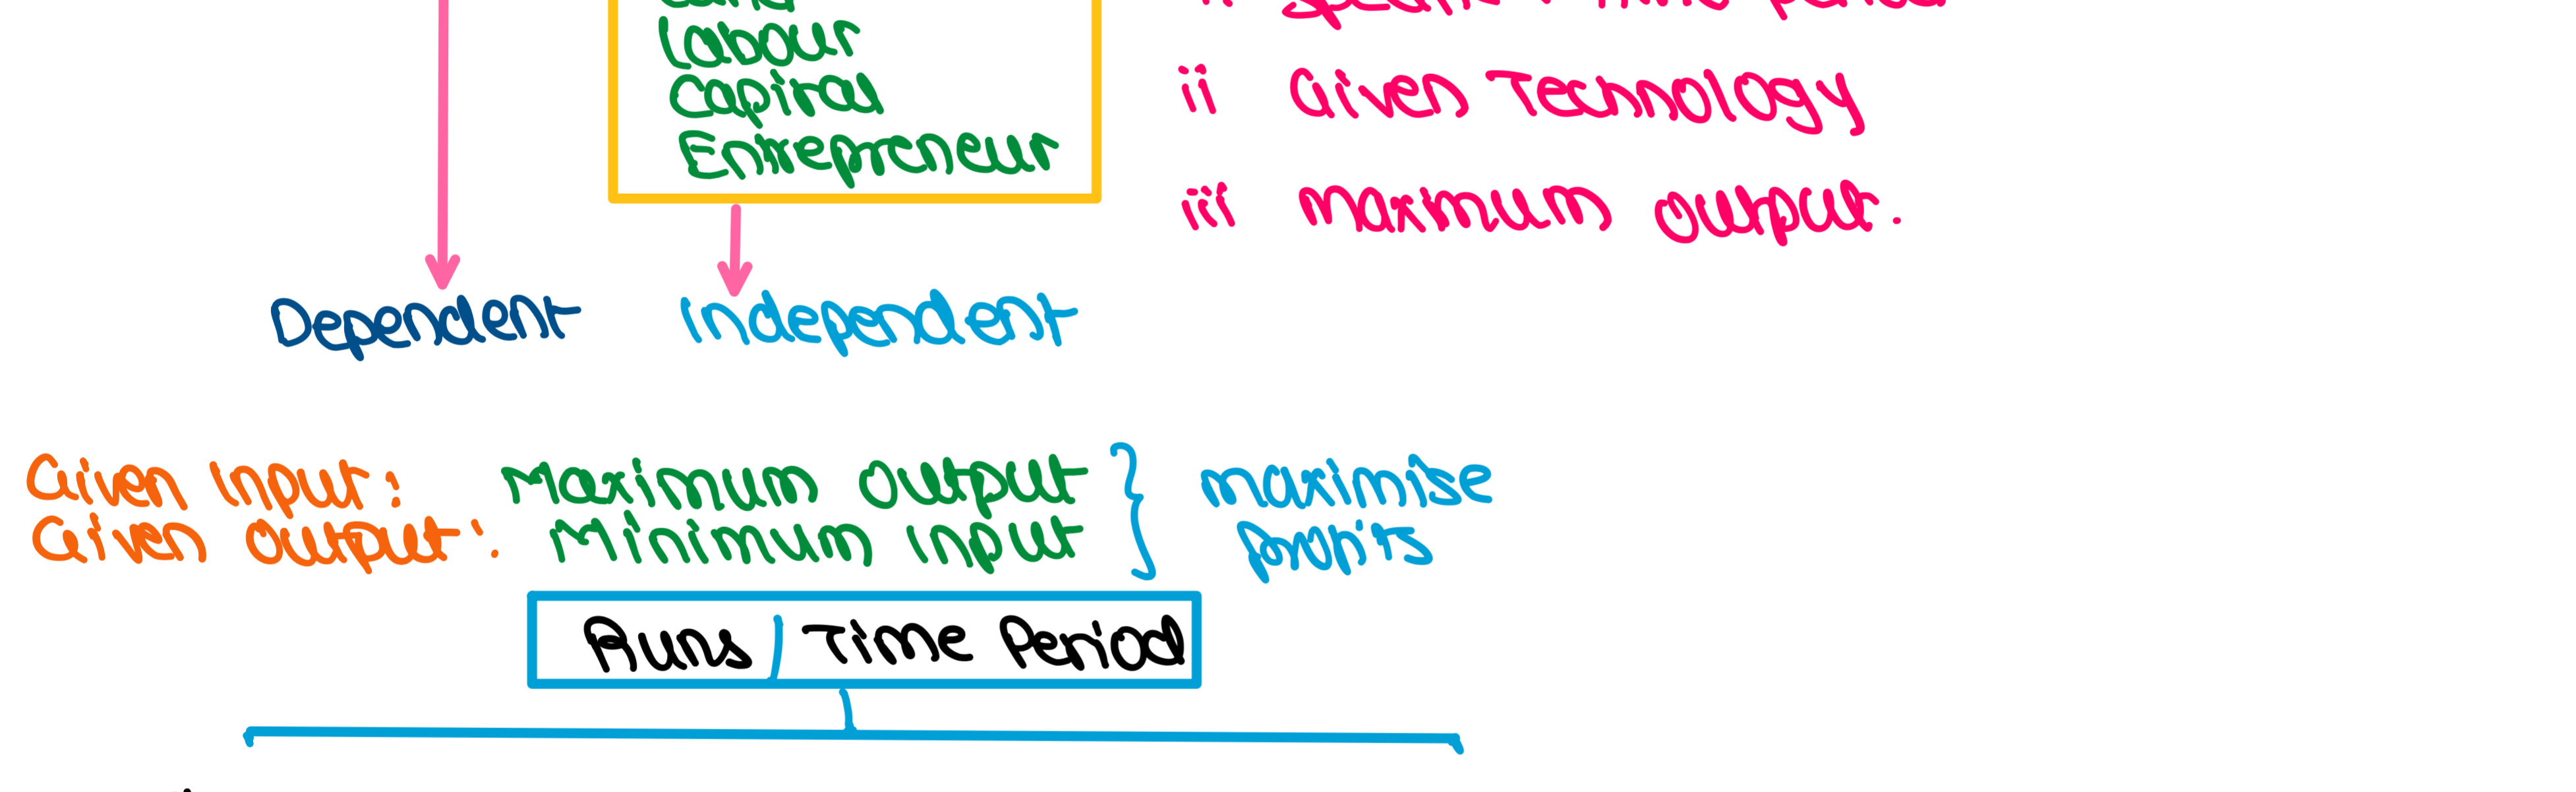 Labour
Capital
Entrepreneur
ii Given Technology
iii Maximum output.
Dependent Independent
Given Input: Maximum output } maximise
Given output: Minimum input profits
Runs / Time Period